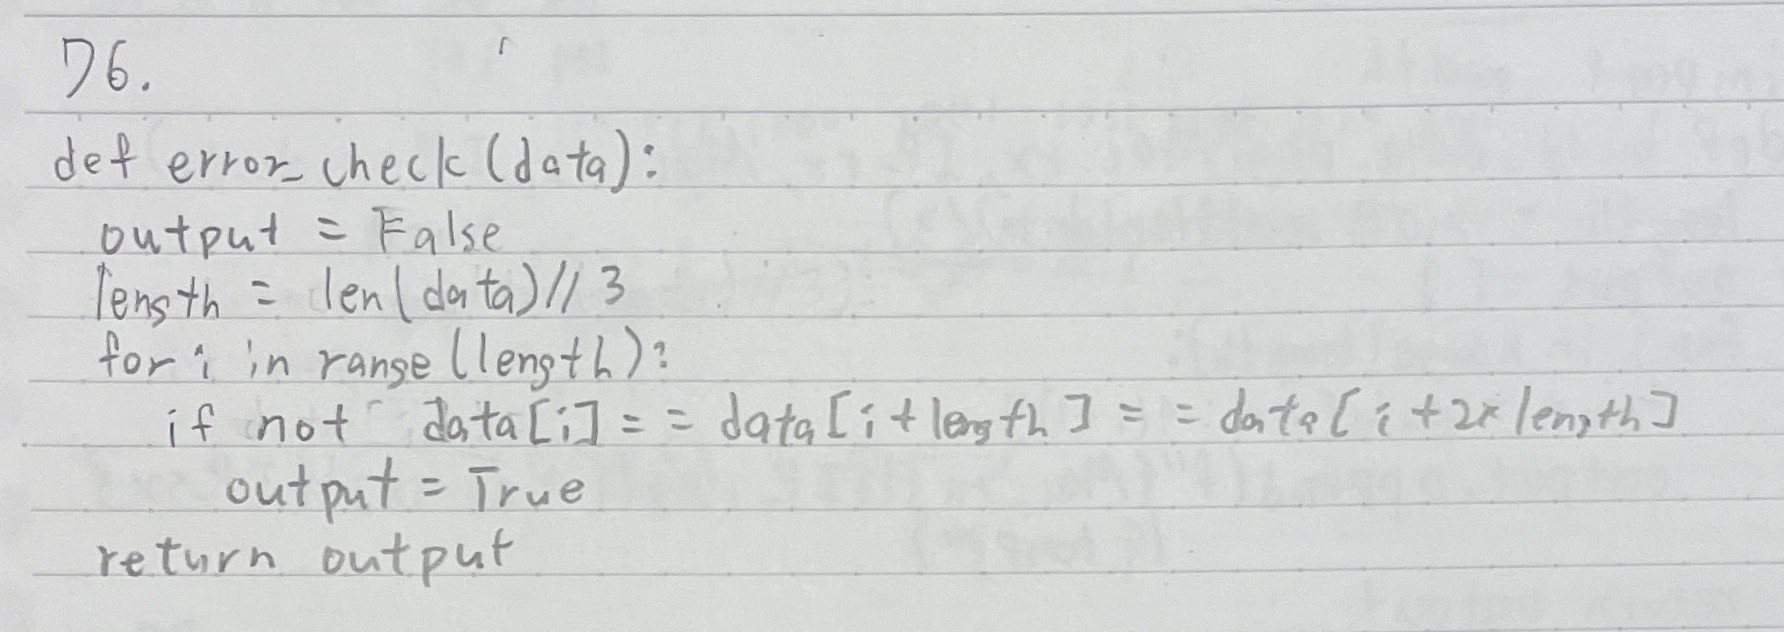 76.
def error_check(data):
output = False
length = len(data)//3
for i in range(length):
if not data[i] == data[i+length] == data[i+2*length]
output = True
return output